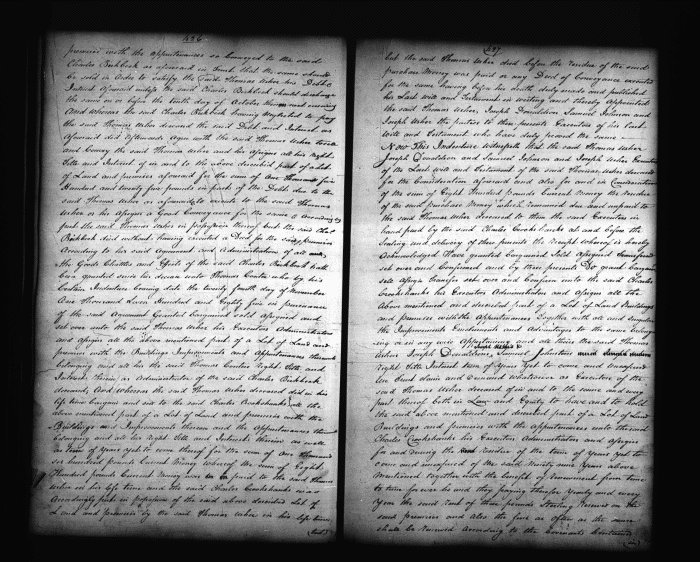 436
premises with the appurtenances so conveyed to the said
Charles Birkbeck as aforesaid in Trust that the same should
be sold in order to satisfy the said Thomas Usher his Debt &
Interest aforesaid unless the said Charles Birkbeck should discharge
the same on or before the tenth day of October then next ensuing
And whereas the said Charles Birkbeck having neglected to pay
the said Thomas Usher deceased the said Debt and Interest as
aforesaid did afterwards agree with the said Thomas Usher to sell
and Convey the said Thomas Usher and his assigns all his Right
Title and Interest of in and to the above described part of a Lot
of Land and premises aforesaid for the sum of One Thousand five
Hundred and twenty five pounds in part of the Debt due to the
said Thomas Usher as aforesaid to execute to the said Thomas
Usher or his Assigns a Good Conveyance for the same & accordingly
put the said Thomas Usher in possession thereof but the said Charles
Birkbeck died without having executed a Deed for the said premises
According to his said Agreement and Administration of all and
the Goods Chattles and Effects of the said Charles Birkbeck hath
been granted since his decease unto Thomas Coates who by his
Certain Indenture bearing date the twenty fourth day of November
One Thousand Seven Hundred and Eighty five in pursuance
of the said Agreement Granted Bargained sold assigned and
set over unto the said Thomas Usher his Executors Administrators
and assigns all the above mentioned part of a Lot of Land and
premises with the Buildings Improvements and Appurtenances thereunto
belonging and all his the said Thomas Coates Right Title and
Interest therein as Administrator of the said Charles Birkbeck
deceased, And whereas the said Thomas Usher deceased did in his
life time bargain and sell to the said Charles Crookshanks all the
above mentioned part of a Lot of Land and premises with the
Buildings and Improvements thereon and the Appurtenances thereunto
belonging and all his Right Title and Interest therein as well
as term of Years yet to come therof for the sum of one thousand
six hundred pounds Current Money whereof the sum of Eight
Hundred pounds Current Money was paid to the said Thomas
Usher in his life time and the said Charles Crookshanks was
Accordingly put in possession of the said above described Lot of
Land and premises by the said Thomas Usher in his life time
but
437
but the said Thomas Usher died before the residue of the said
purchase Money was paid or any Deed of Conveyance executed
for the same having before his death duly made and published
his Last will and Testament in writing and thereby appointed
the said Thomas Usher, Joseph Donaldson Samuel Johnson and
Joseph Usher the parties to these presents Executors of his Last
will and Testament who have duly proved the same
Now This Indenture Witnesseth that the said Thomas Usher
Joseph Donaldson and Samuel Johnson and Joseph Usher Executors
of the Last will and Testament of the said Thomas Usher deceased
for the Consideration aforesaid and also for and in Consideration
of the sum of Eight Hundred pounds Current Money the residue
of the said purchase Money which remained due and unpaid to
the said Thomas Usher deceased to them the said Executors in
hand paid by the said Charles Crookshanks at and before the
Sealing and delivery of these presents the receipt whereof is hereby
Acknowledged Have granted Bargained Sold assigned transferred
set over and Confirmed and by these presents Do grant bargain
sell assign transfer set over and Confirm unto the said Charles
Crookshanks his Executors Administrators and Assigns all the
Above mentioned and described part of a Lot of Land Buildings
and premises with the Appurtenances Together with all and singular
the Improvements Emoluments and Advantages to the same belonging
or in any wise Appertaining and all their the said Thomas
Usher Joseph Donaldson, Samuel Johnston
Right Title Interest term of Years Yet to come and unexpired
Use Trust claim and demand whatsoever as Executors of the
said Thomas Usher deceased of in and to the same and every
part thereof both in Law and Equity to have and to hold
the said above mentioned and described part of a Lot of Land
Buildings and premises with the appurtenances unto the said
Charles Crookshanks his Executors Administrators and Assigns
for and during the Residue of the term of Years yet to
come and unexpired of the said Ninety nine Years above
Mentioned together with the benefit of renewment from time
to time for ever he and they paying therefor Yearly and every
Year the said Rent of three pounds Sterling Reserved on the
said premises and also the fine as often as the same
shall be Renewed According to the Covenants Contained
in